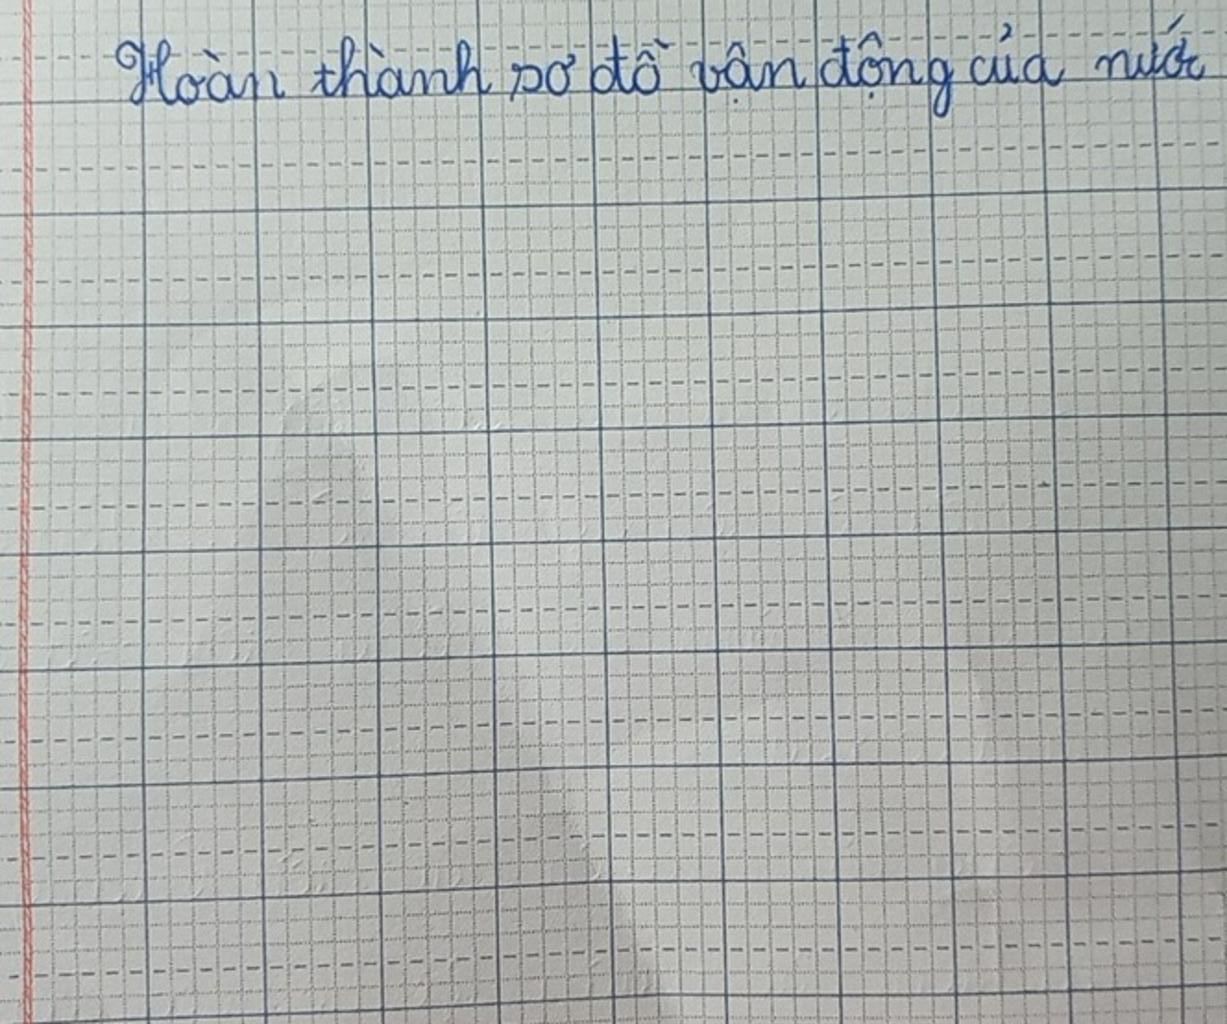 Hoàn thành sơ đồ vận động của nước